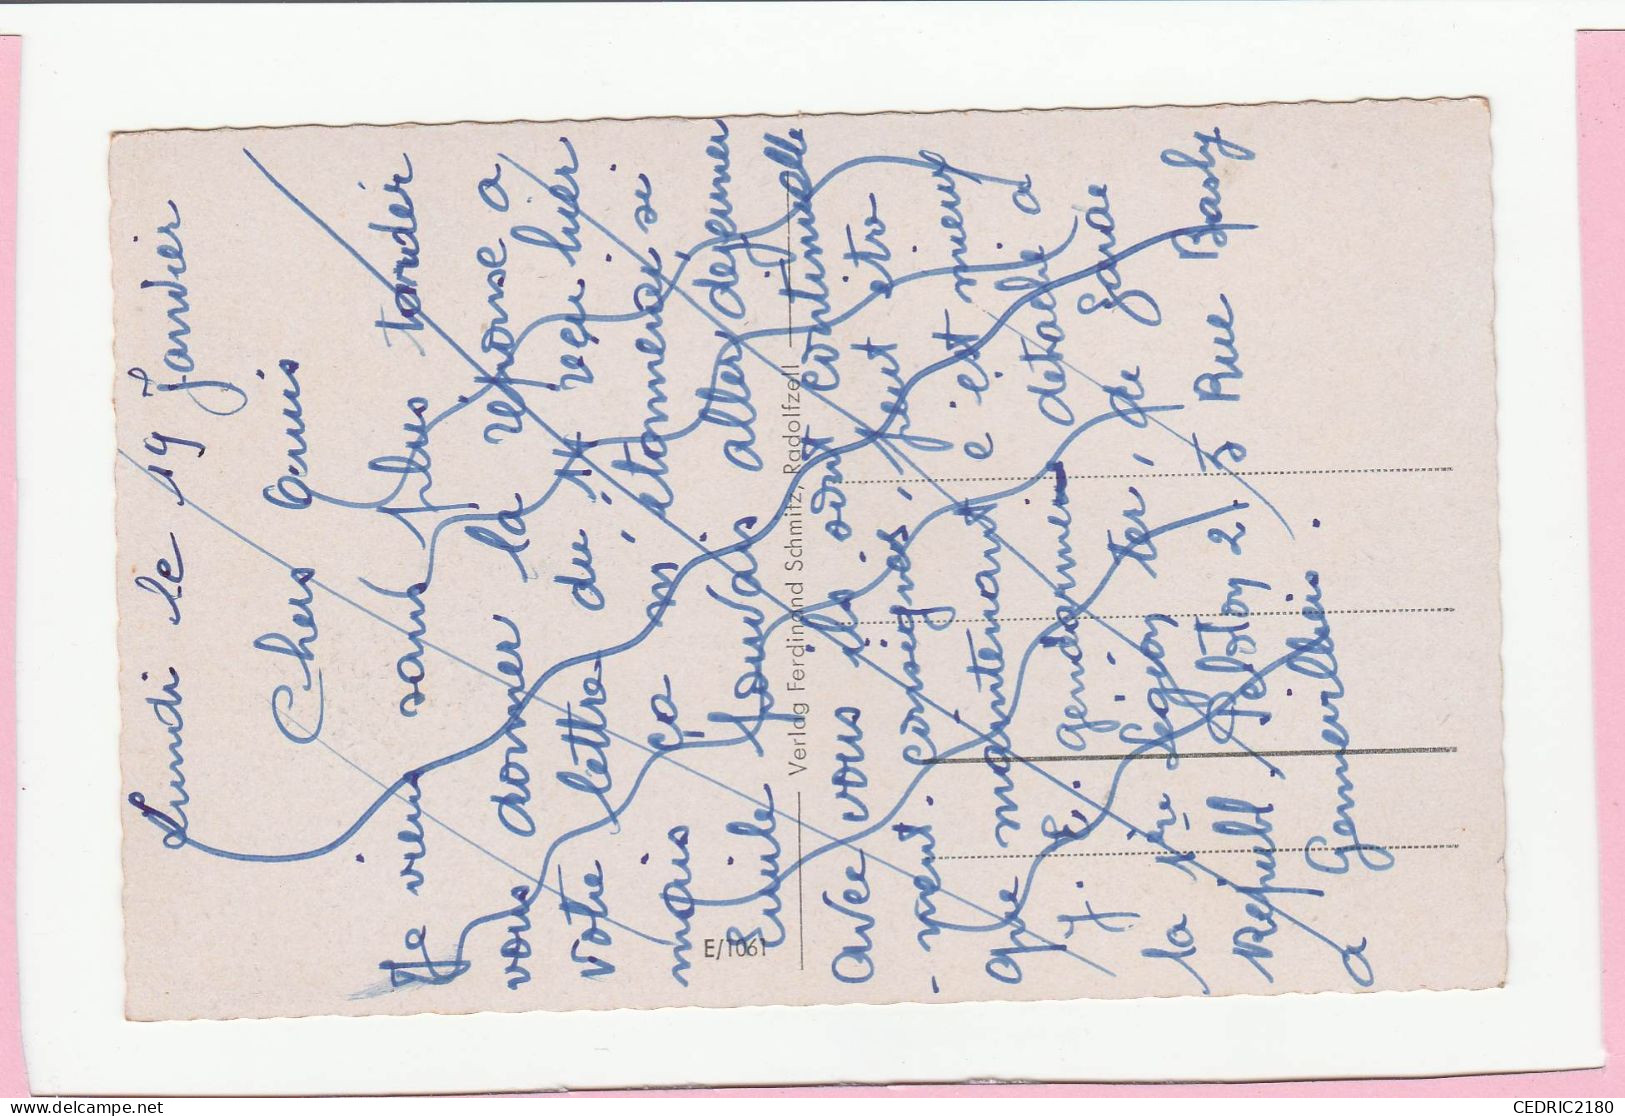 Lundi le 19 Janvier
Chers Amis
Je viens sans plus tarder
vous donner la réponse a
votre lettre du 14 reçu hier
mais ça m'étonnerai si
Emile pouvais aller déjeuner
avec vous ils sont continuelle
- ment consignés, peut etre
que maintenant c'est mieux
il est détaché a
J. gendarmerie
la 1ère Légion ter, de Garde
Républ, Peloton 2. 5 Rue Bashy
a Gennevilliers.
E/1061
Verlag Ferdinand Schmitz, Radolfzell
CEDRIC2180